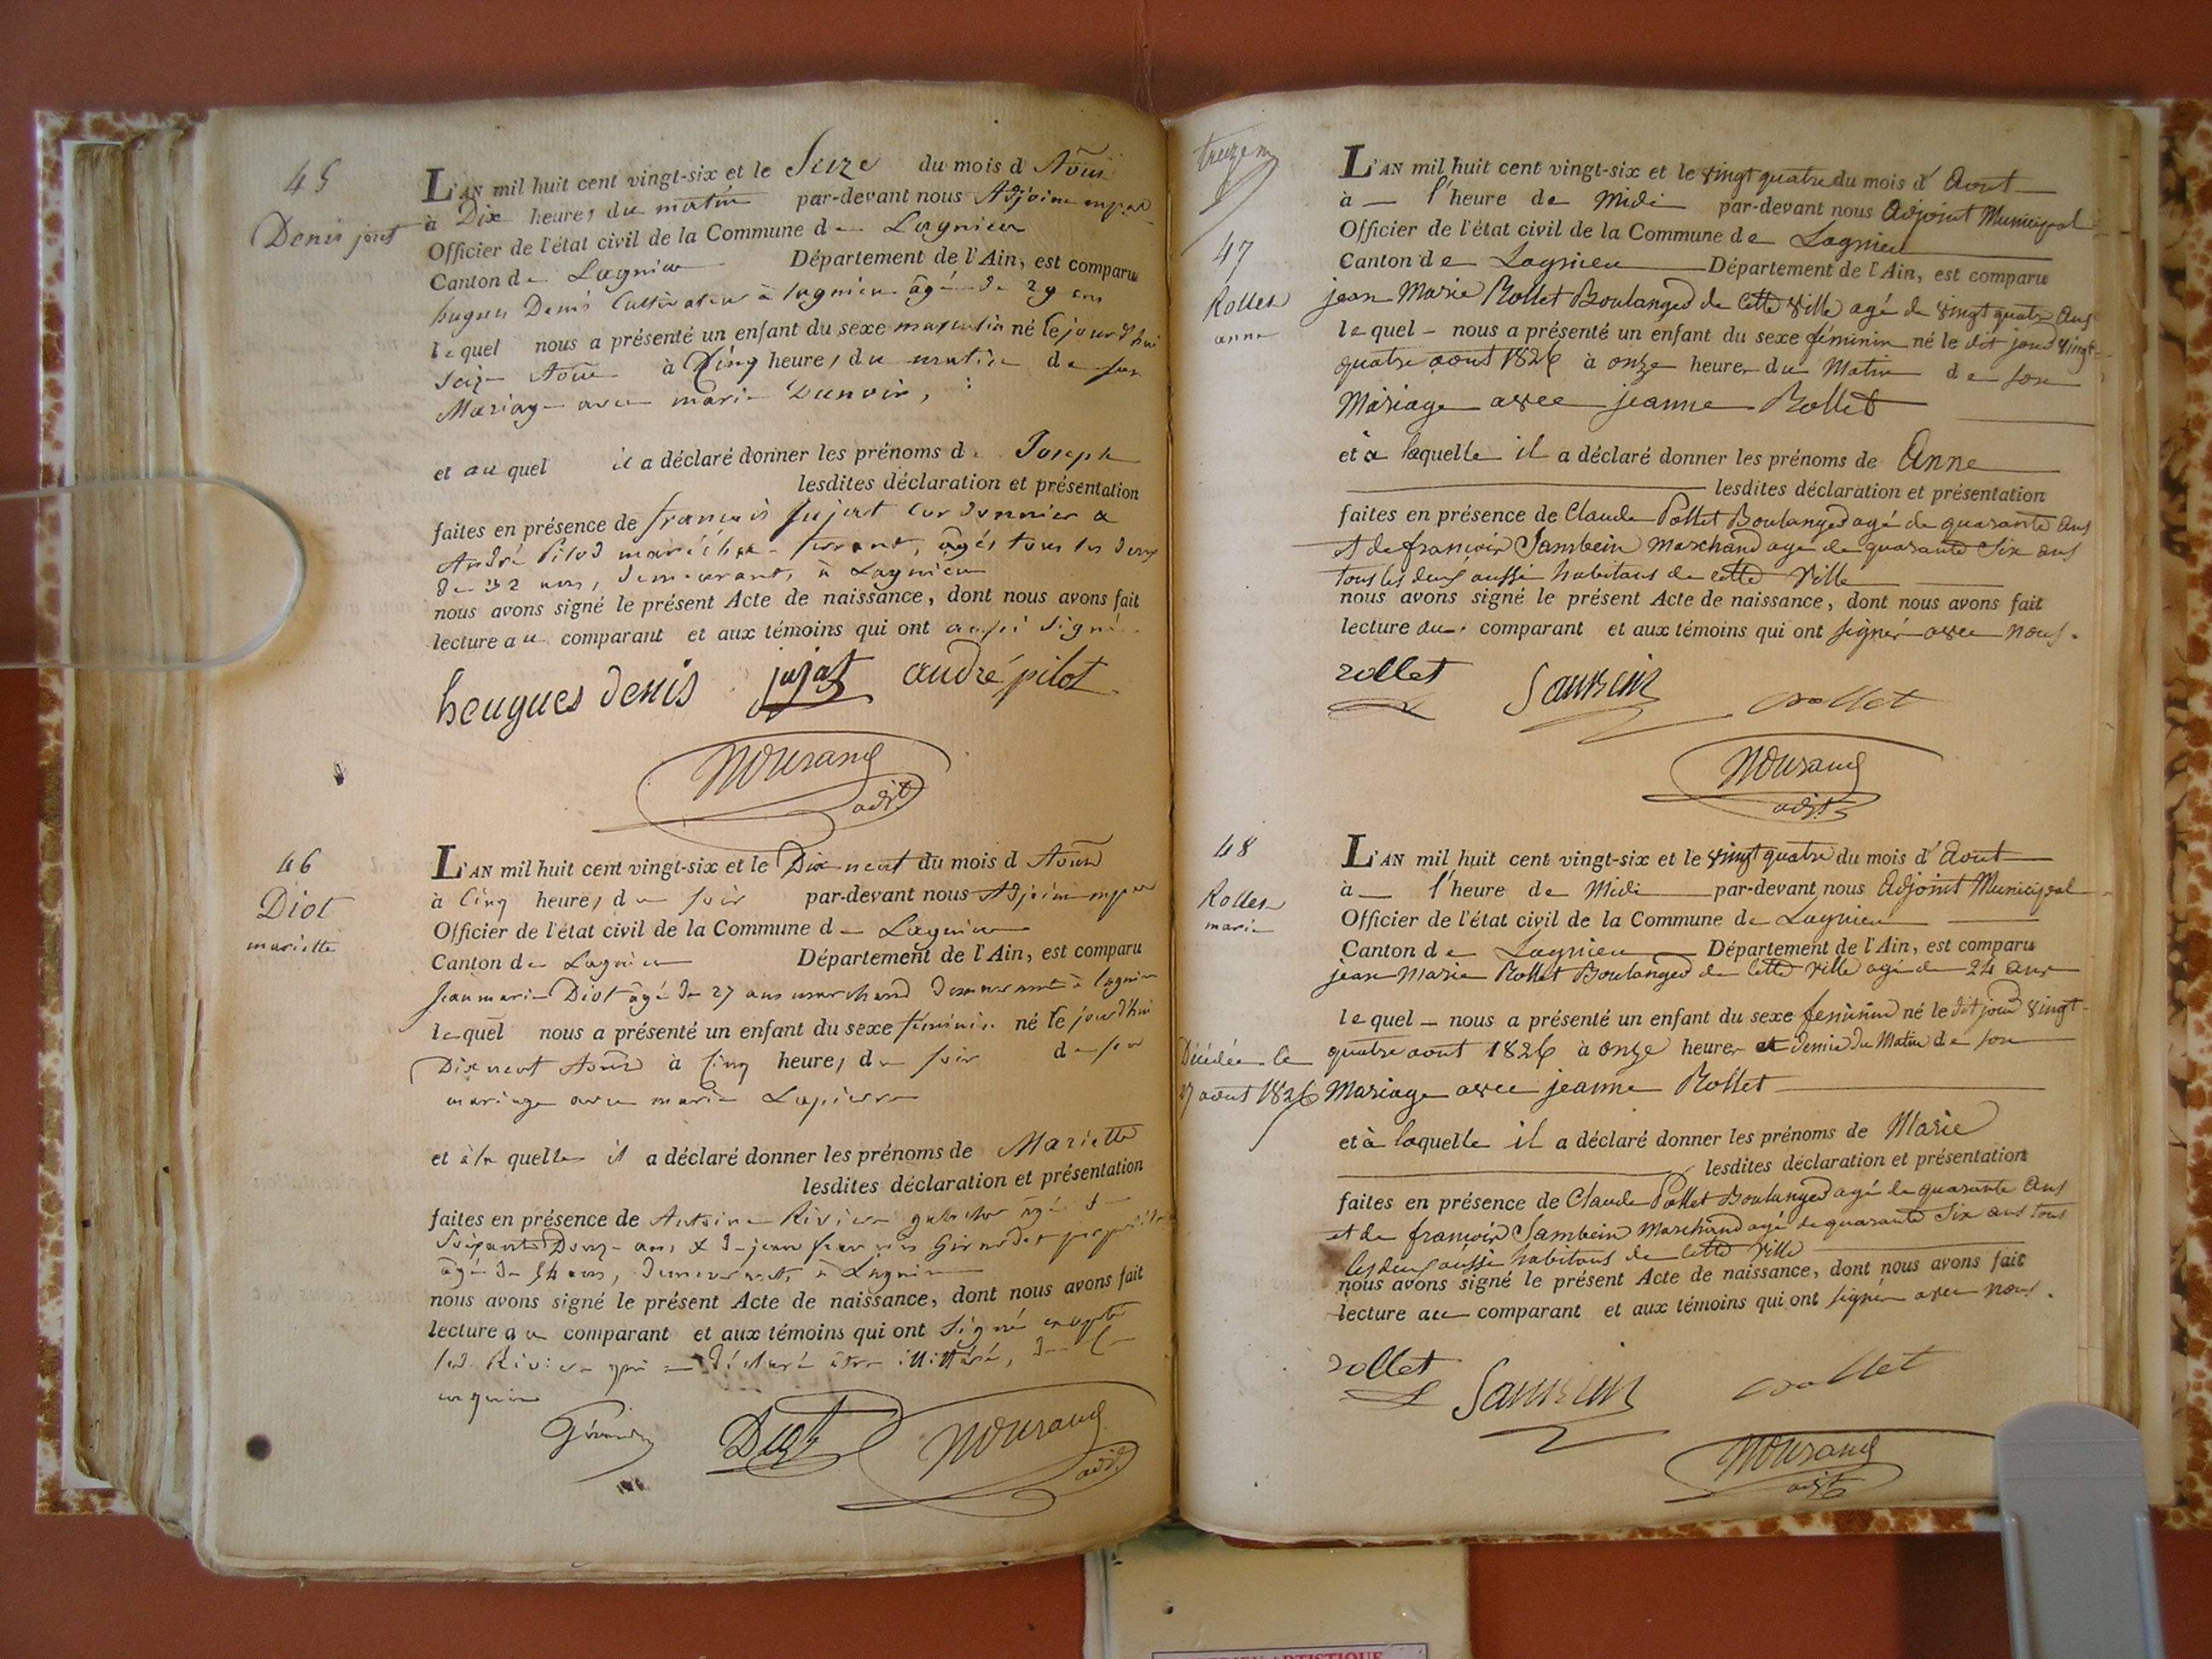 45
Denis joseph
L'AN mil huit cent vingt-six et le Seize du mois d Aout
à Dix heures du matin par-devant nous Adjoint
Officier de l'état civil de la Commune de Lagnieu
Canton de Lagnieu Département de l'Ain, est comparu
hugues Denis Cultivateur à lagnieu âgé de 29 ans
lequel nous a présenté un enfant du sexe masculin né le jourd'hui
Seize Aout à Cinq heures du matin de son
Mariage avec marie Dunoir,
et au quel il a déclaré donner les prénoms de Joseph
lesdites déclaration et présentation
faites en présence de françois Jujat Cordonnier &
André Pilod maréchal-ferrant, âgés tous les deux
de 32 ans, demeurants à Lagnieu
nous avons signé le présent Acte de naissance, dont nous avons fait
lecture au comparant et aux témoins qui ont aussi signé.
heugues denis jujat andré pilot
adjt
46
Diot
mariette
L'AN mil huit cent vingt-six et le Dix-neuf du mois d Aout
à Cinq heures du soir par-devant nous Adjoint
Officier de l'état civil de la Commune de Lagnieu
Canton de Lagnieu Département de l'Ain, est comparu
Jean marie Diot âgé de 27 ans marchand demeurant à lagnieu
lequel nous a présenté un enfant du sexe féminin né le jourd'hui
Dix neuf Aout à Cinq heures du soir de son
mariage avec marie Lapierre
et à la quelle il a déclaré donner les prénoms de Mariette
lesdites déclaration et présentation
faites en présence de Antoine Rivier âgé de
Soixante Douze ans & de jean
âgé de 54 ans, demeurants à Lagnieu
nous avons signé le présent Acte de naissance, dont nous avons fait
lecture au comparant et aux témoins qui ont Signé excepté
led. Rivier qui a Déclaré être illitéré, de ce
enquis
Diot adjt
47
Rollet
anne
L'AN mil huit cent vingt-six et le vingt quatre du mois d'Aout
à l'heure de Midi par-devant nous Adjoint Municipal
Officier de l'état civil de la Commune de Lagnieu
Canton de Lagnieu Département de l'Ain, est comparu
jean Marie Rollet Boulanger de cette Ville agé de vingt quatre Ans
le quel nous a présenté un enfant du sexe féminin né le dit jour vingt-
quatre aout 1826 à onze heures du Matin de son
Mariage avec jeanne Rollet
et à laquelle il a déclaré donner les prénoms de Anne
lesdites déclaration et présentation
faites en présence de Claude Pollet Boulanger agé de quarante Ans
et de françois Sambein Marchand agé de quarante Six ans
tous les deux aussi habitans de cette Ville
nous avons signé le présent Acte de naissance, dont nous avons fait
lecture au comparant et aux témoins qui ont signés avec nous.
rollet
adjt
48
Rollet
marie
Décédée le
27 aout 1826
L'AN mil huit cent vingt-six et le vingt quatre du mois d'Aout
à l'heure de Midi par-devant nous Adjoint Municipal
Officier de l'état civil de la Commune de Lagnieu
Canton de Lagnieu Département de l'Ain, est comparu
jean Marie Rollet Boulanger de cette Ville agé de 24 ans
le quel nous a présenté un enfant du sexe feminin né le dit jour vingt-
quatre aout 1826 à onze heures et demie du Matin de son
Mariage avec jeanne Rollet
et à laquelle il a déclaré donner les prénoms de Marie
lesdites déclaration et présentation
faites en présence de Claude Pollet Boulanger agé de quarante Ans
et de françois Sambein Marchand agé de quarante Six ans tous
les deux aussi habitans de cette Ville
nous avons signé le présent Acte de naissance, dont nous avons fait
lecture au comparant et aux témoins qui ont signés avec nous.
rollet
adjt